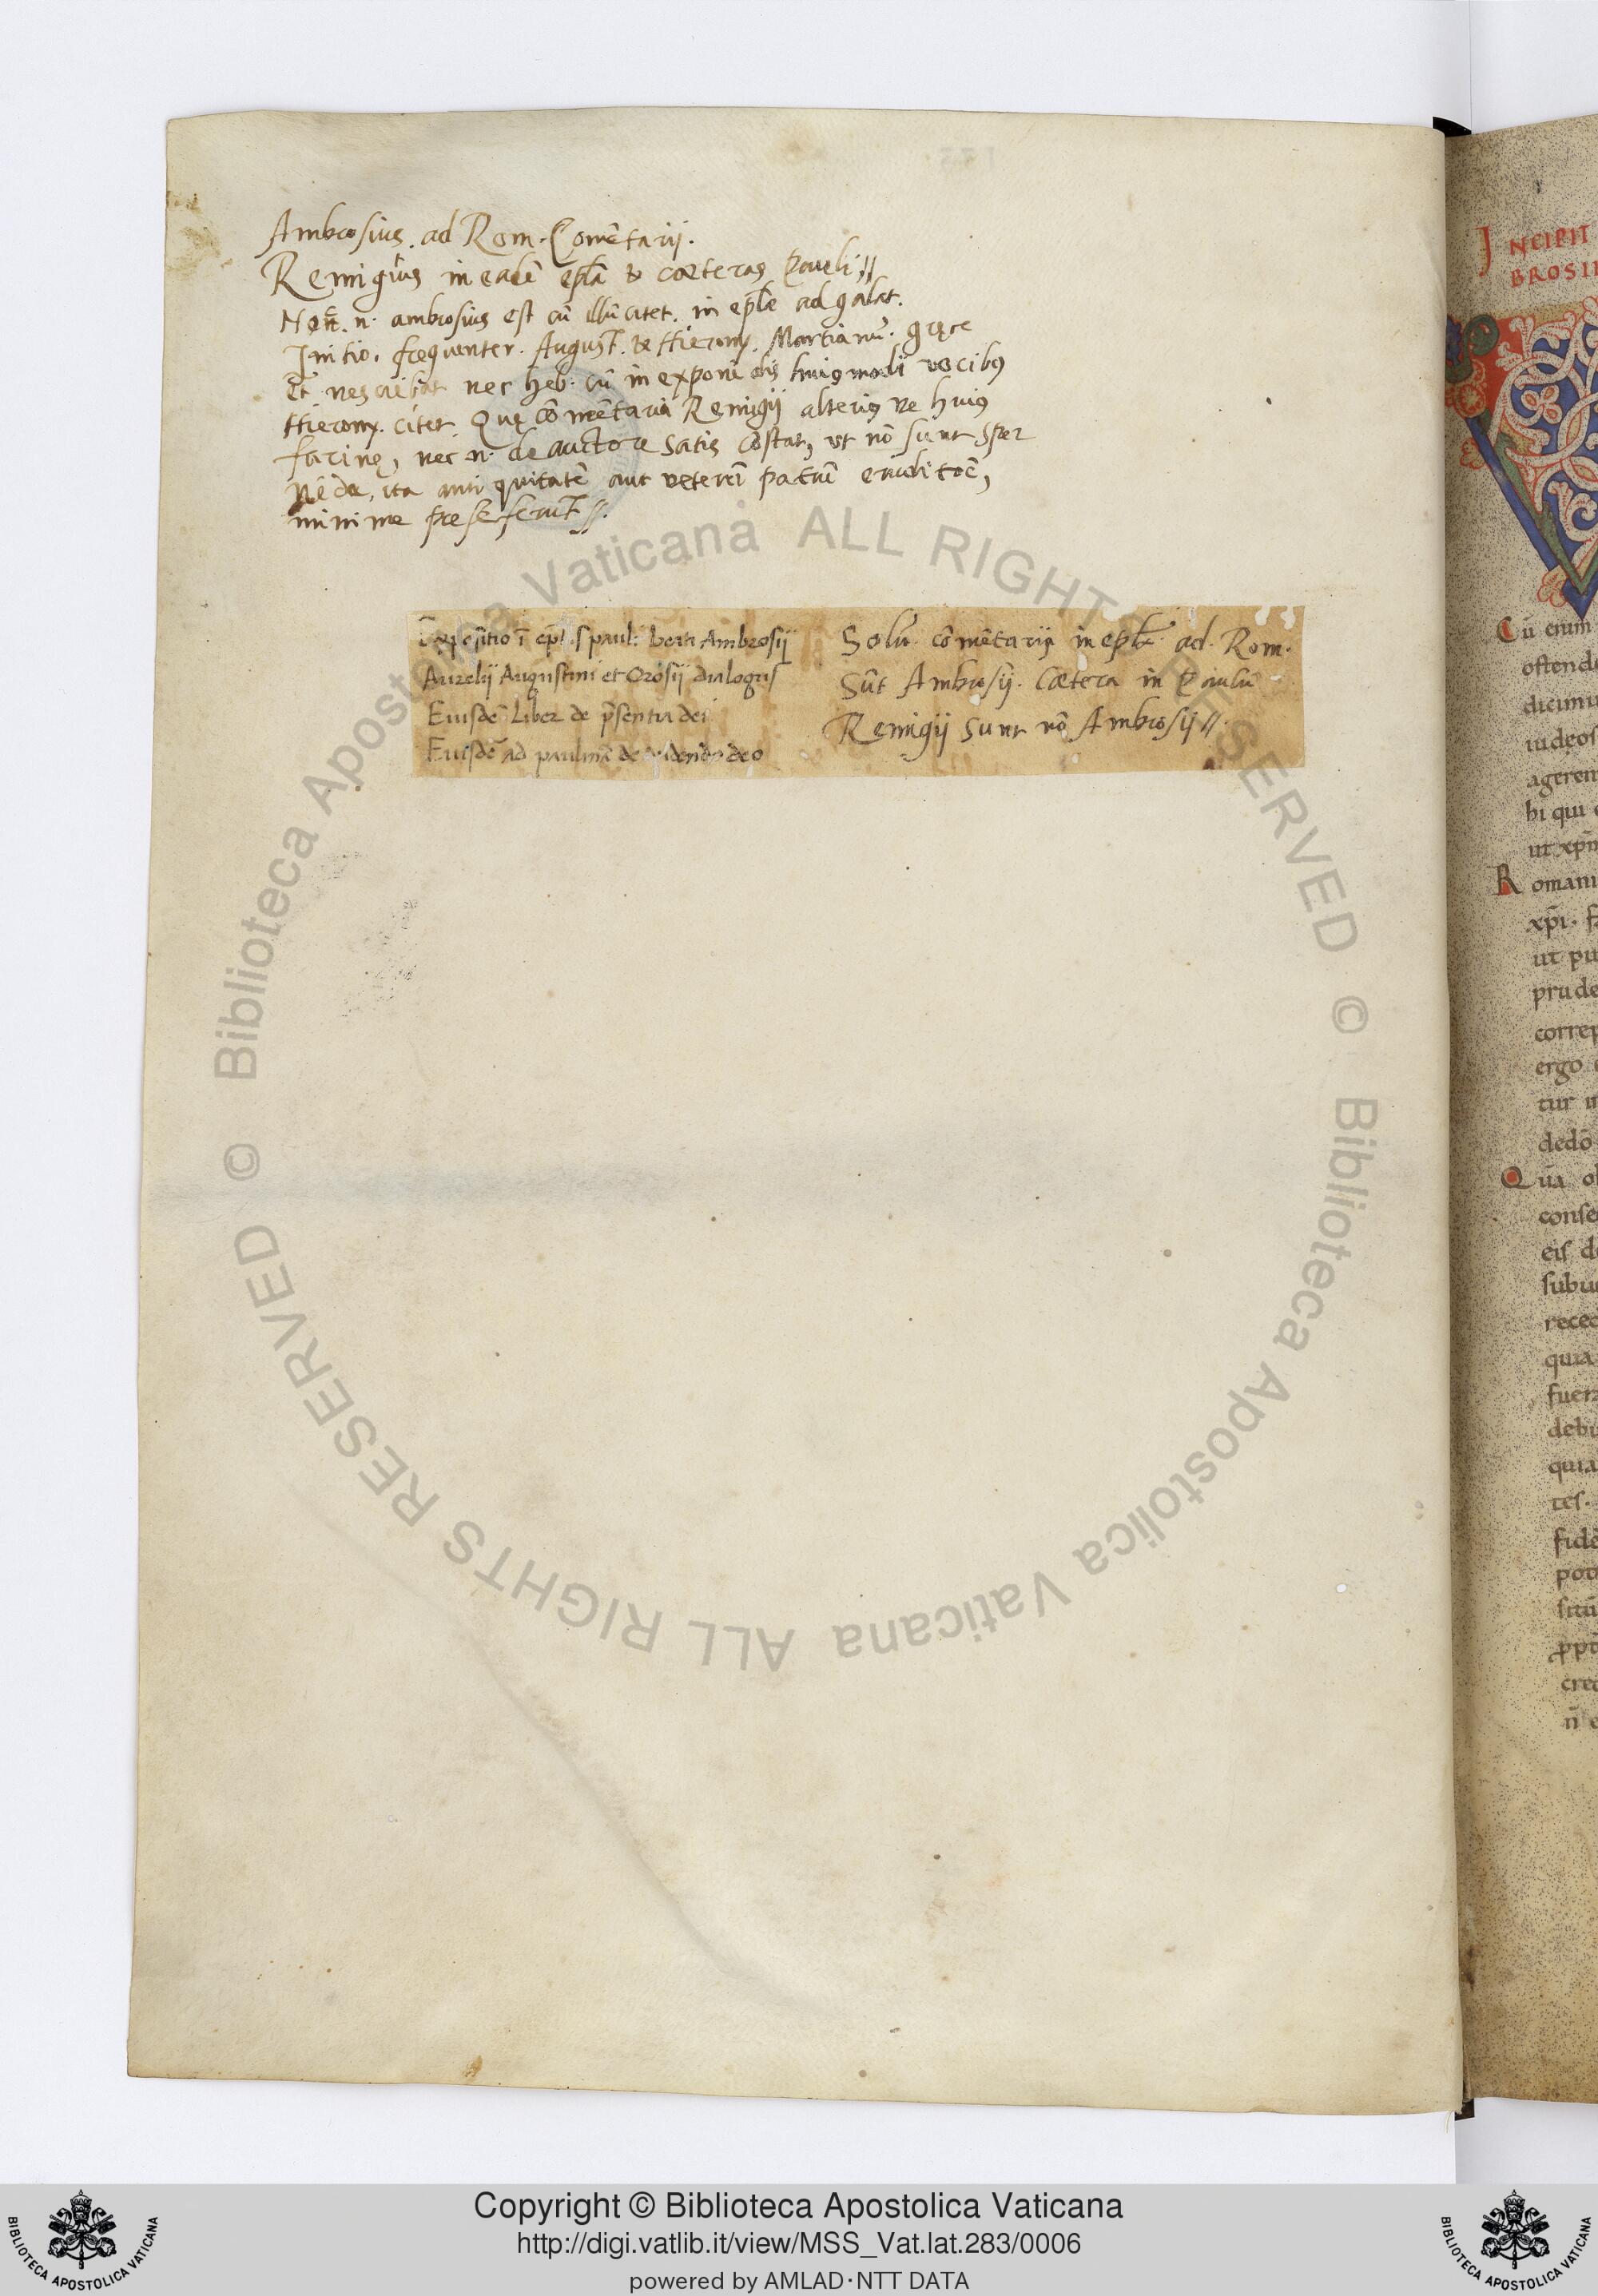 Ambrosius. ad Rom. Comētarij.
Remigius in eadē epla & cæteras Pauli //
Non. n. ambrosius est cū illū citet. in epla ad galat.
Initio. frequenter. August. & Hierony. Martianū. gręce
Et nesciebat nec heb. cū in exponēdis huiusmodi vocibus
Hierony. citet. Quę cōmētaria Remigij alterius ve huius
farinę, nec n. de auctore satis cōstat, ut nō sunt sper
nēda, ita antiquitatē aut veterū patrū
minime præ se ferunt //.
Expositio ī epl. s pauli beati Ambrosij
Aurelij Augustini et Orosij dialogus
Eiusdē Liber de p̄sentia dei
Eiusdē ad paulinā de videndo deo
Solū cōmētarij in epla ad. Rom.
Sūt Ambrosij. Cætera in Paulū
Remigij sunt nō Ambrosij //.
INCIPIT
BROSII
Cū enim
ostende
dicimu
iudęos
agerem
hi qui
ut xp̄m
Romani
xp̄i. f
ut pu
prude
correp
ergo
tur in
dedō
Qūa ob
conse
eis de
subue
reced
quia
fuer
debu
quia
tes.
fidē
pot
sitū
crec
n̄ e
© Biblioteca Apostolica Vaticana ALL RIGHTS RESERVED © Biblioteca Apostolica Vaticana ALL RIGHTS RESERVED
Copyright © Biblioteca Apostolica Vaticana
http://digi.vatlib.it/view/MSS_Vat.lat.283/0006
powered by AMLAD·NTT DATA
BIBLIOTECA APOSTOLICA VATICANA
BIBLIOTECA APOSTOLICA VATICANA